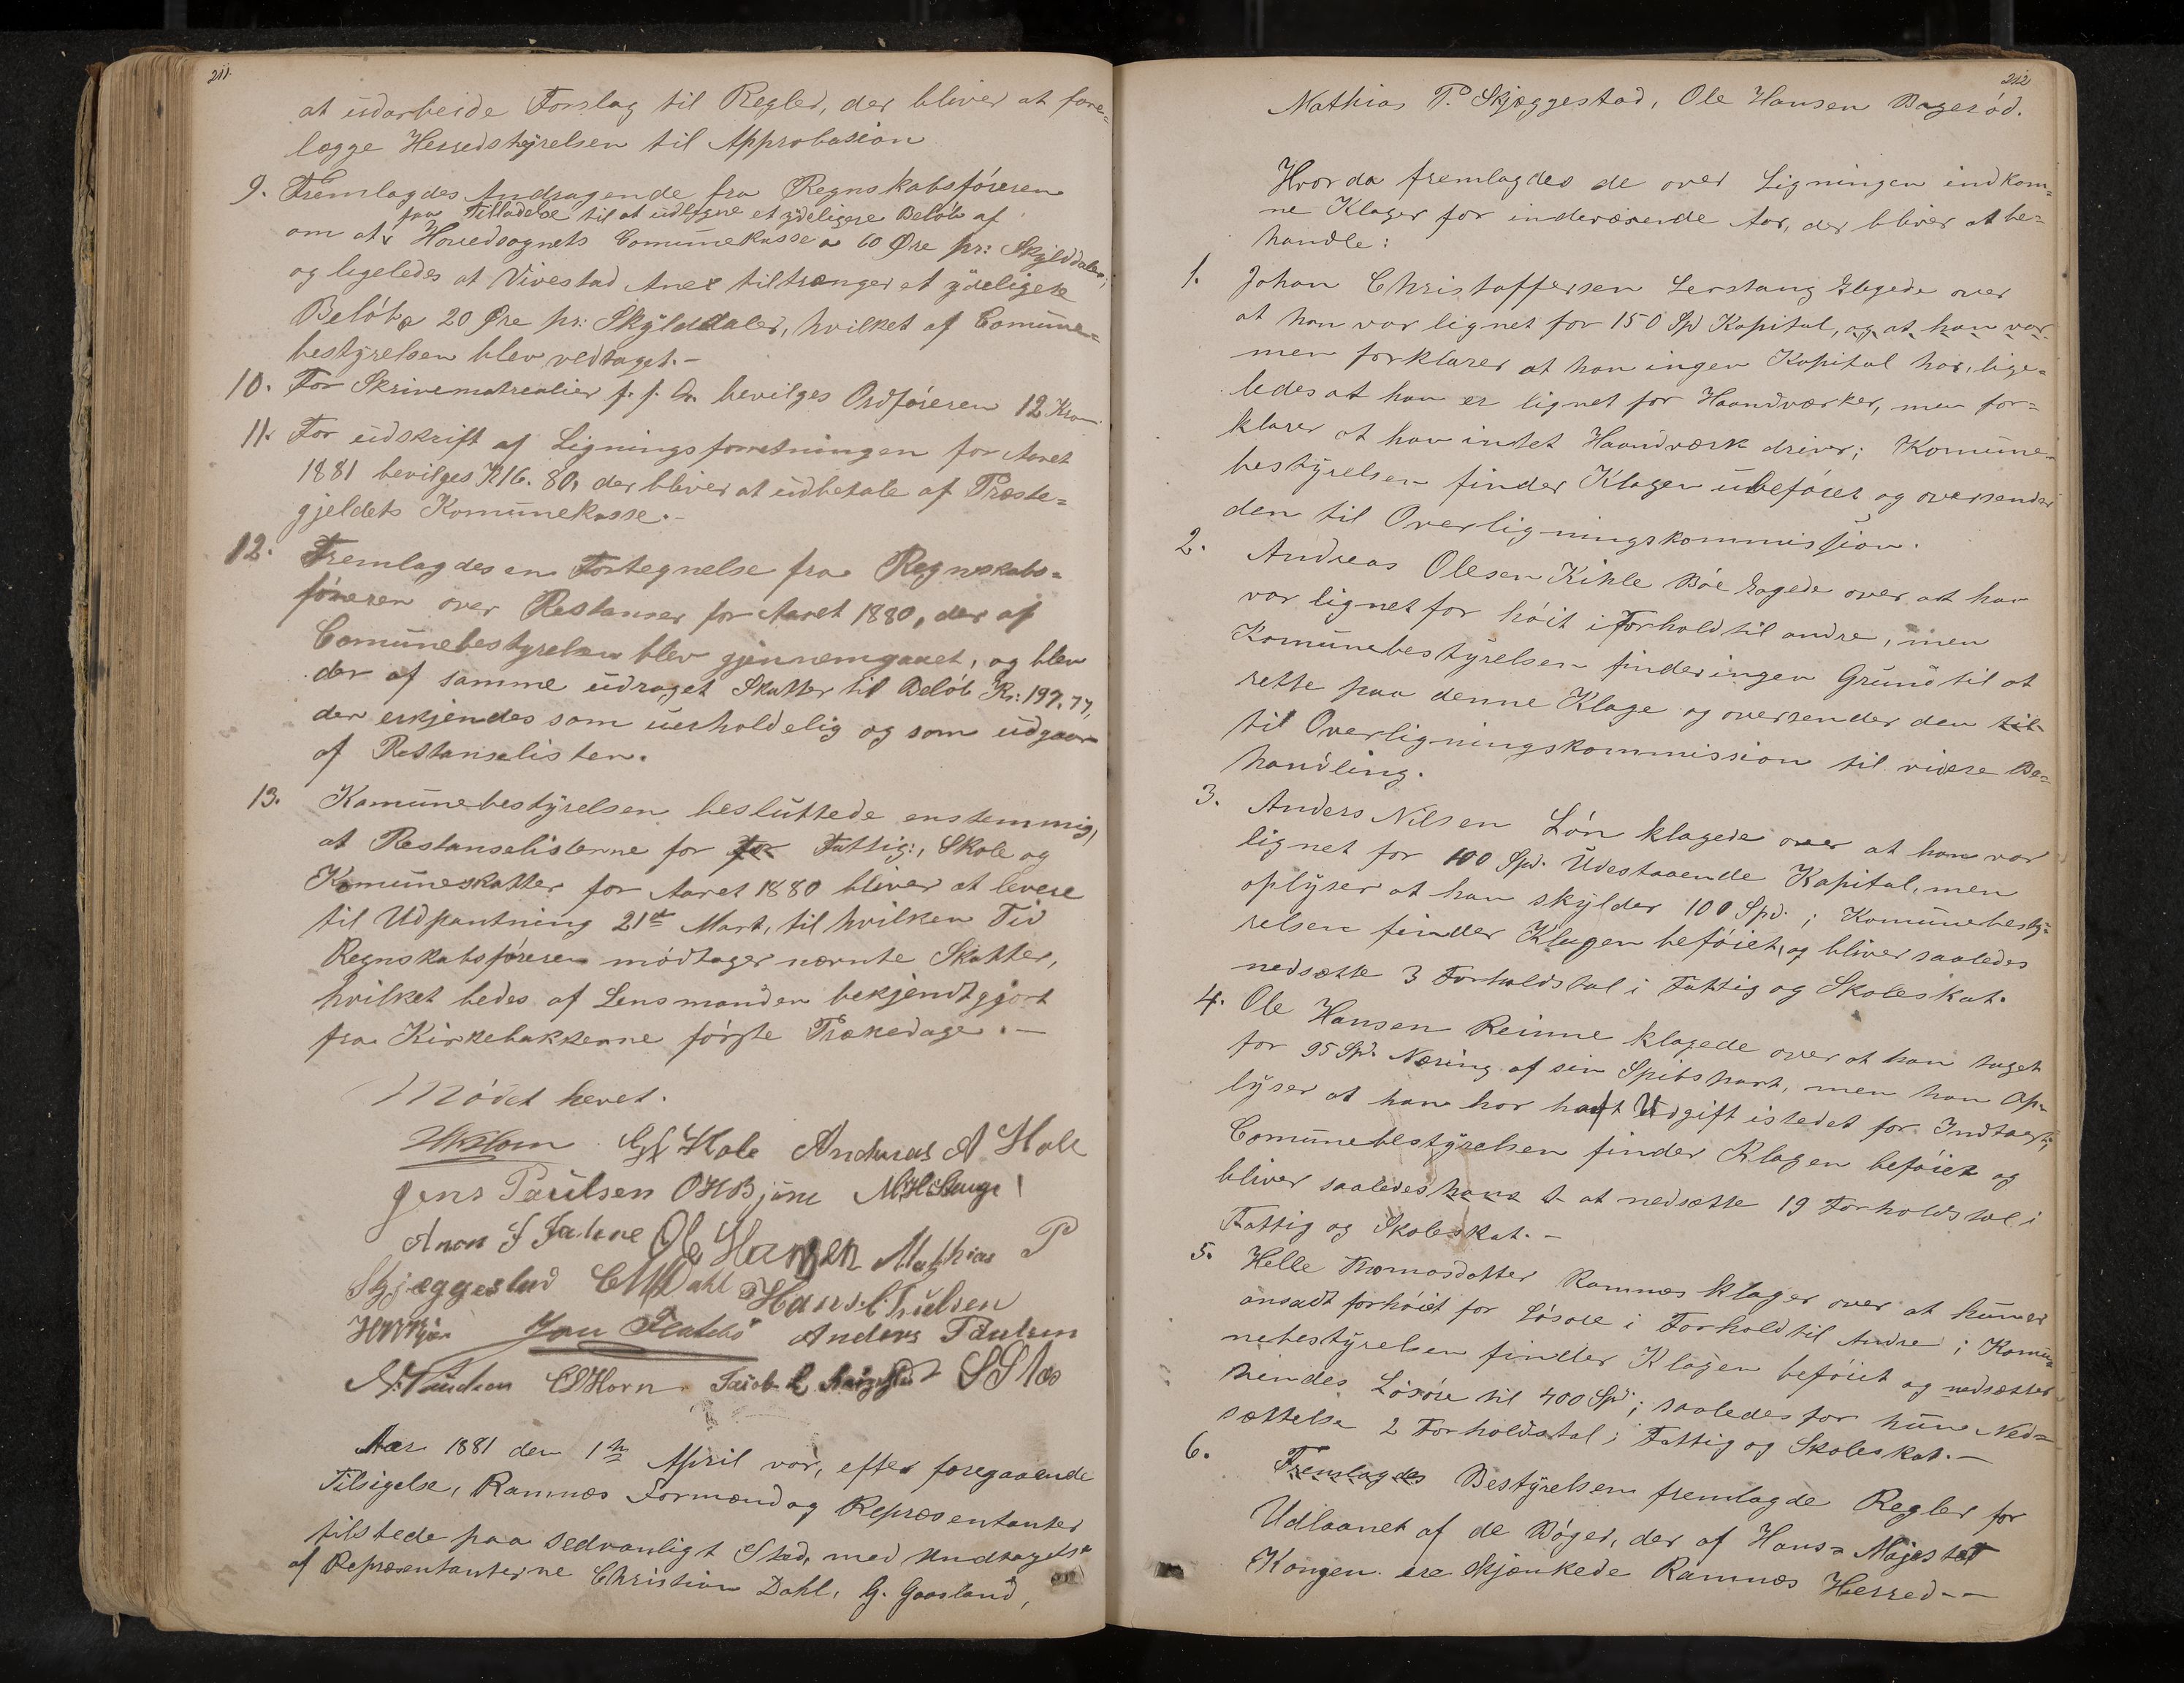 211.
at udarbeide Forslag til Regler, der bliver at fore=
lægge Herredstyrelsen til Approbasion
9. Fremlagdes Andragende fra Regnskabsføreren
faa Tilladelse til at udligne et ydeligere Beløb af
om at Hovedsognets Comunekasse a 60 Øre pr: Skylddaler,
og ligeledes at Vivestad Anex tiltrænger et ydeligere
Beløb a 20 Øre pr: Skylddaler, hvilket af Comune=
bestyrelsen blev vedtaget.-
10. For Skrivematrealier f. f. A. bevilges Ordføreren 12 Kron
11. For udskrift af Ligningsforretningen for Aaret
1881 bevilges K 16. 80, der bliver at udbetale af Præste=
gjeldets Komunekasse.-
12. Fremlagdes en Fortegnelse fra Regnskabs=
føreren over Restanser for Aaret 1880, der af
Comunebestyrelsen blev gjennemgaaet, og blev
der af samme udraget Skatter til Beløb Kr: 197.77,
der erkjendes som uerholdelig og som udgaar
af Restanselisten.
13. Komunebestyrelsen besluttede enstemmig,
at Restanselisterne for for Fattig:, Skole og
Komuneskatter for Aaret 1880 bliver at levere
til Udpantning 21de Mart, til hvilken Tid
Regnskabsføreren modtager nævnte Skatter,
hvilket bedes af Lensmanden bekjendtgjort
fra Kirkebakkerne første Prækedage.-
Mødet hevet.
Hole Andreas A Hole
Jens Paulsen OHBjune
Ole Hansen Mathias P
Skjæggestad CMDahl Hans C. Trulsen
Anders Paulsen
CHorn Jacob
Aar 1881 den 1ste April var, efter foregaaende
Tilsigelse, Ramnæs Formænd og Repræsentanter
tilstede paa sedvanligt Sted, med Undtagelse
af Repræsentanterne Christian Dahl, G. Gaasland,
212
Mathias P. Skjæggestad, Ole Hansen Bagerød.
Hvor da fremlagdes de over Ligningen indkom=
ne Klager for indeværende Aar, der bliver at be=
handle:
1. Johan Christoffersen Lerstang klagede over
at han var lignet for 150 Spd Kapital, og at han var
men forklarer at han ingen Kapital har, lige=
ledes at han er lignet for Haandværker, men for=
klarer at han intet Haandværk driver; Komune=
bestyrelsen finder Klagen ubeføiet og oversender
den til Overligningskommission.
2. Andreas Olesen Kihle Bøe klagede over at han
var lignet for høit i Forhold til andre, men
Komunebestyrelsen finder ingen Grund til at
rette paa denne Klage og oversender den til
til Overligningskommission til videre Be=
handling.
3. Anders Nilsen Løn klagede over at han var
lignet for 100 Spd. Udestaaende Kapital, men
oplyser at han skylder 100 Spd.; Komunebesty=
relsen finder Klagen beføiet, og bliver saaledes
nedsætte 3 Forholdstal i Fattig og Skoleskat.
4. Ole Hansen Reinne klagede over at han taget
for 95 Spd. Næring af sin Spitshart, men han Op=
lyser at han har havt Udgift istedet for Indtægt;
Comunebestyrelsen finder Klagen beføiet og
bliver saaledes hans S at nedsætte 19 Forholdstal i
Fattig og Skoleskat.-
5. Helle Thomasdatter Ramnæs klager over at hun er
ansadt forhøiet for Løsøre i Forhold til Andre; Komu=
nebestyrelsen finder Klagen beføiet og nedsætter
hindes Løsøre til 400 Spd; saaledes for hune Ned=
sættelse 2 Forholdstal i Fattig og Skoleskat.-
6. Fremlagdes Bestyrelsen fremlagde Regler for
Udlaanet af de Bøger, der af Hans= Majestæt
Kongen ere skjænkede Ramnæs Herred--